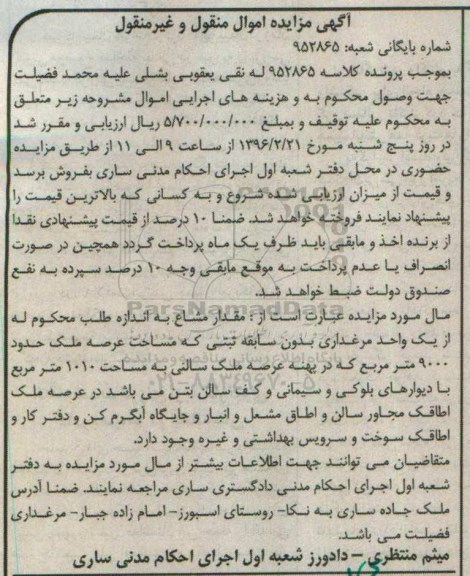 آگهی مزایده اموال منقول و غیرمنقول
شماره بایگانی شعبه: ۹۵۲۸۶۵
بموجب پرونده کلاسه ۹۵۲۸۶۵ له نقی یعقوبی بشلی علیه محمد فضیلت
جهت وصول محکوم به و هزینه های اجرایی اموال مشروحه زیر متعلق
به محکوم علیه توقیف و بمبلغ ۵/۷۰۰/۰۰۰/۰۰۰ ریال ارزیابی و مقرر شد
در روز پنج شنبه مورخ ۱۳۹۶/۲/۲۱ از ساعت ۹ الی ۱۱ از طریق مزایده
حضوری در محل دفتر شعبه اول اجرای احکام مدنی ساری بفروش برسد
و قیمت از میزان ارزیابی شده شروع و به کسانی که بالاترین قیمت را
پیشنهاد نمایند فروخته خواهد شد. ضمنا ۱۰ درصد از قیمت پیشنهادی نقدا
از برنده اخذ و مابقی باید ظرف یک ماه پرداخت گردد همچین در صورت
انصراف یا عدم پرداخت به موقع مابقی وجه ۱۰ درصد سپرده به نفع
صندوق دولت ضبط خواهد شد.
مال مورد مزایده عبارت است از: مقدار مشاع به اندازه طلب محکوم له
از یک واحد مرغداری بدون سابقه ثبتی که مساحت عرصه ملک حدود
۹۰۰۰ متر مربع که در پهنه عرصه ملک سالنی به مساحت ۱۰۱۰ متر مربع
با دیوارهای بلوکی و سیمانی و کف سالن بتن می باشد در عرصه ملک
اطاقک مجاور سالن و اطاق مشعل و انبار و جایگاه آبگرم کن و دفتر کار و
اطاقک سوخت و سرویس بهداشتی و غیره وجود دارد.
متقاضیان می توانند جهت اطلاعات بیشتر از مال مورد مزایده به دفتر
شعبه اول اجرای احکام مدنی دادگستری ساری مراجعه نمایند. ضمنا آدرس
ملک جاده ساری به نکا- روستای اسبورز- امام زاده جبار- مرغداری
فضیلت می باشد.
میثم منتظری – دادورز شعبه اول اجرای احکام مدنی ساری
ParsNamadData